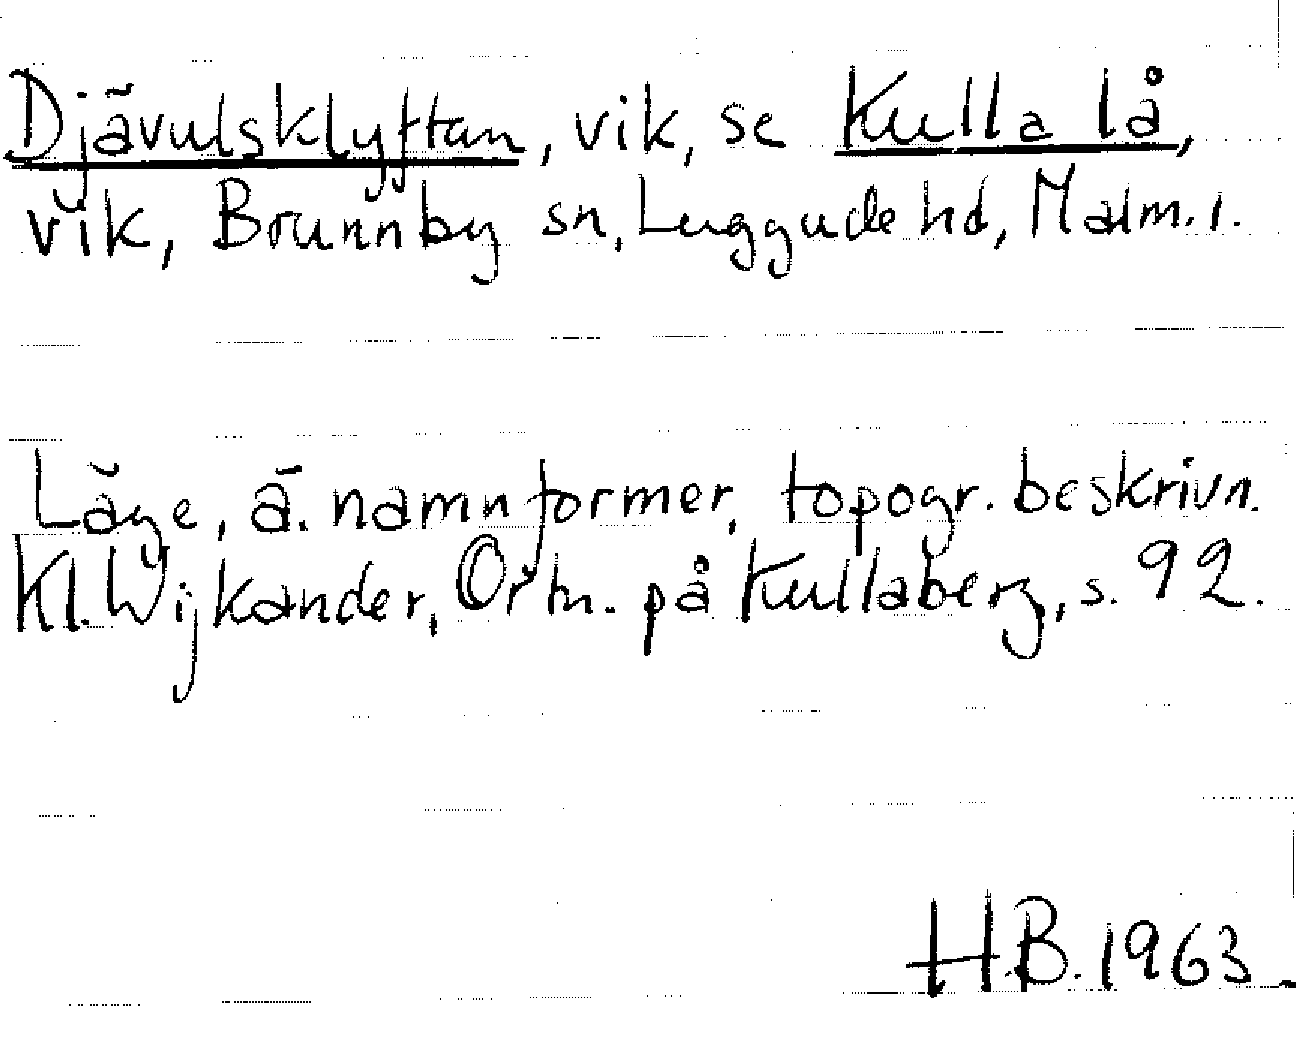 Djävulsklyftan, vik, se Kulla lå,
vik, Brunnby sn, Luggude hd, Malm. l.
Läge, ä. namnformer, topogr. beskrivn.
Kl. Wijkander, Ortn. på Kullaberg, s. 92.
H.B. 1963